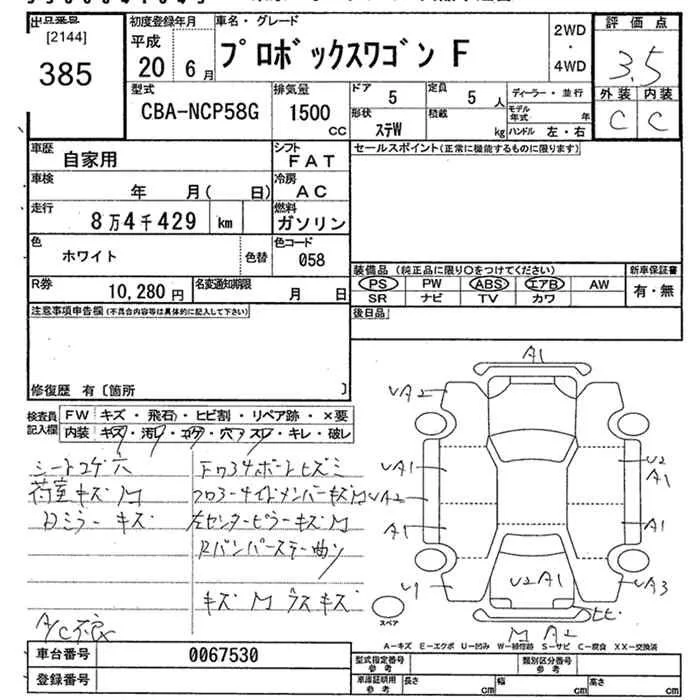 出品番号 初度登録年月 車名・グレード 2WD 評価点
[2144] 平成 プロボックスワゴン F ・ 3.5
385 20 6月 4WD 外装 内装
型式 排気量 ドア 5 定員 5人 ディーラー・並行 C C
CBA-NCP58G 1500CC 形状 ステW 積載 kg モデル年式 年
ハンドル 左・右
車歴 自家用 シフト FAT セールスポイント(正常に機能するものに限ります)
車検 年 月( 日) 冷房 AC
走行 8万4千429 km 燃料 ガソリン
色 ホワイト 色替 色コード 058
装備品 (純正品に限り○をつけてください) 新車保証書
R券 10,280円 名変通知期限 月 日 PS PW ABS エアB AW 有・無
SR ナビ TV カワ
注意事項申告欄(不具合内容等は具体的に記入して下さい) 後日品
修復歴 有〔箇所 〕
検査員記入欄 FW キズ・飛石・ヒビ割・リペア跡・×要
内装 キズ・汚レ・コゲ・穴・スレ・キレ・破レ
シートコゲ穴
荷室キズ M フロアサイドメンバーキズM
Dミラーキズ 左センターピラーキズM
Rバンパーステー曲り
キズ M ラスキズ
A/C不良
A1
UA2 A2
UA1 U2 A1
UA2
A1 A1
U1 U2A1 UA3
スペア ヒビ
M A2
A-キズ E-エクボ U-凹み W-補修跡 S-サビ C-腐食 XX-交換済
車台番号 0067530 型式指定番号 参考 類別区分番号 参考
登録番号 車庫証明用 参考 長さ cm 幅 cm 高さ cm